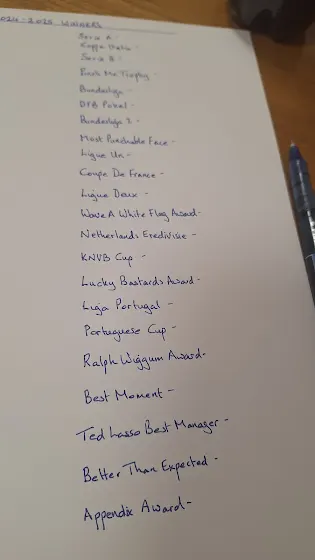 2024-2025 WINNERS
Serie A -
Coppa Italia -
Serie B -
Back Me Trophy -
Bundesliga -
DFB Pokal -
Bundesliga 2 -
Most Punchable Face -
Ligue Un -
Coupe De France -
Ligue Deux -
Wave A White Flag Award -
Netherlands Eredivisie -
KNVB Cup -
Lucky Bastards Award -
Liga Portugal -
Portuguese Cup -
Ralph Wiggum Award -
Best Moment -
Ted Lasso Best Manager -
Better Than Expected -
Appendix Award -